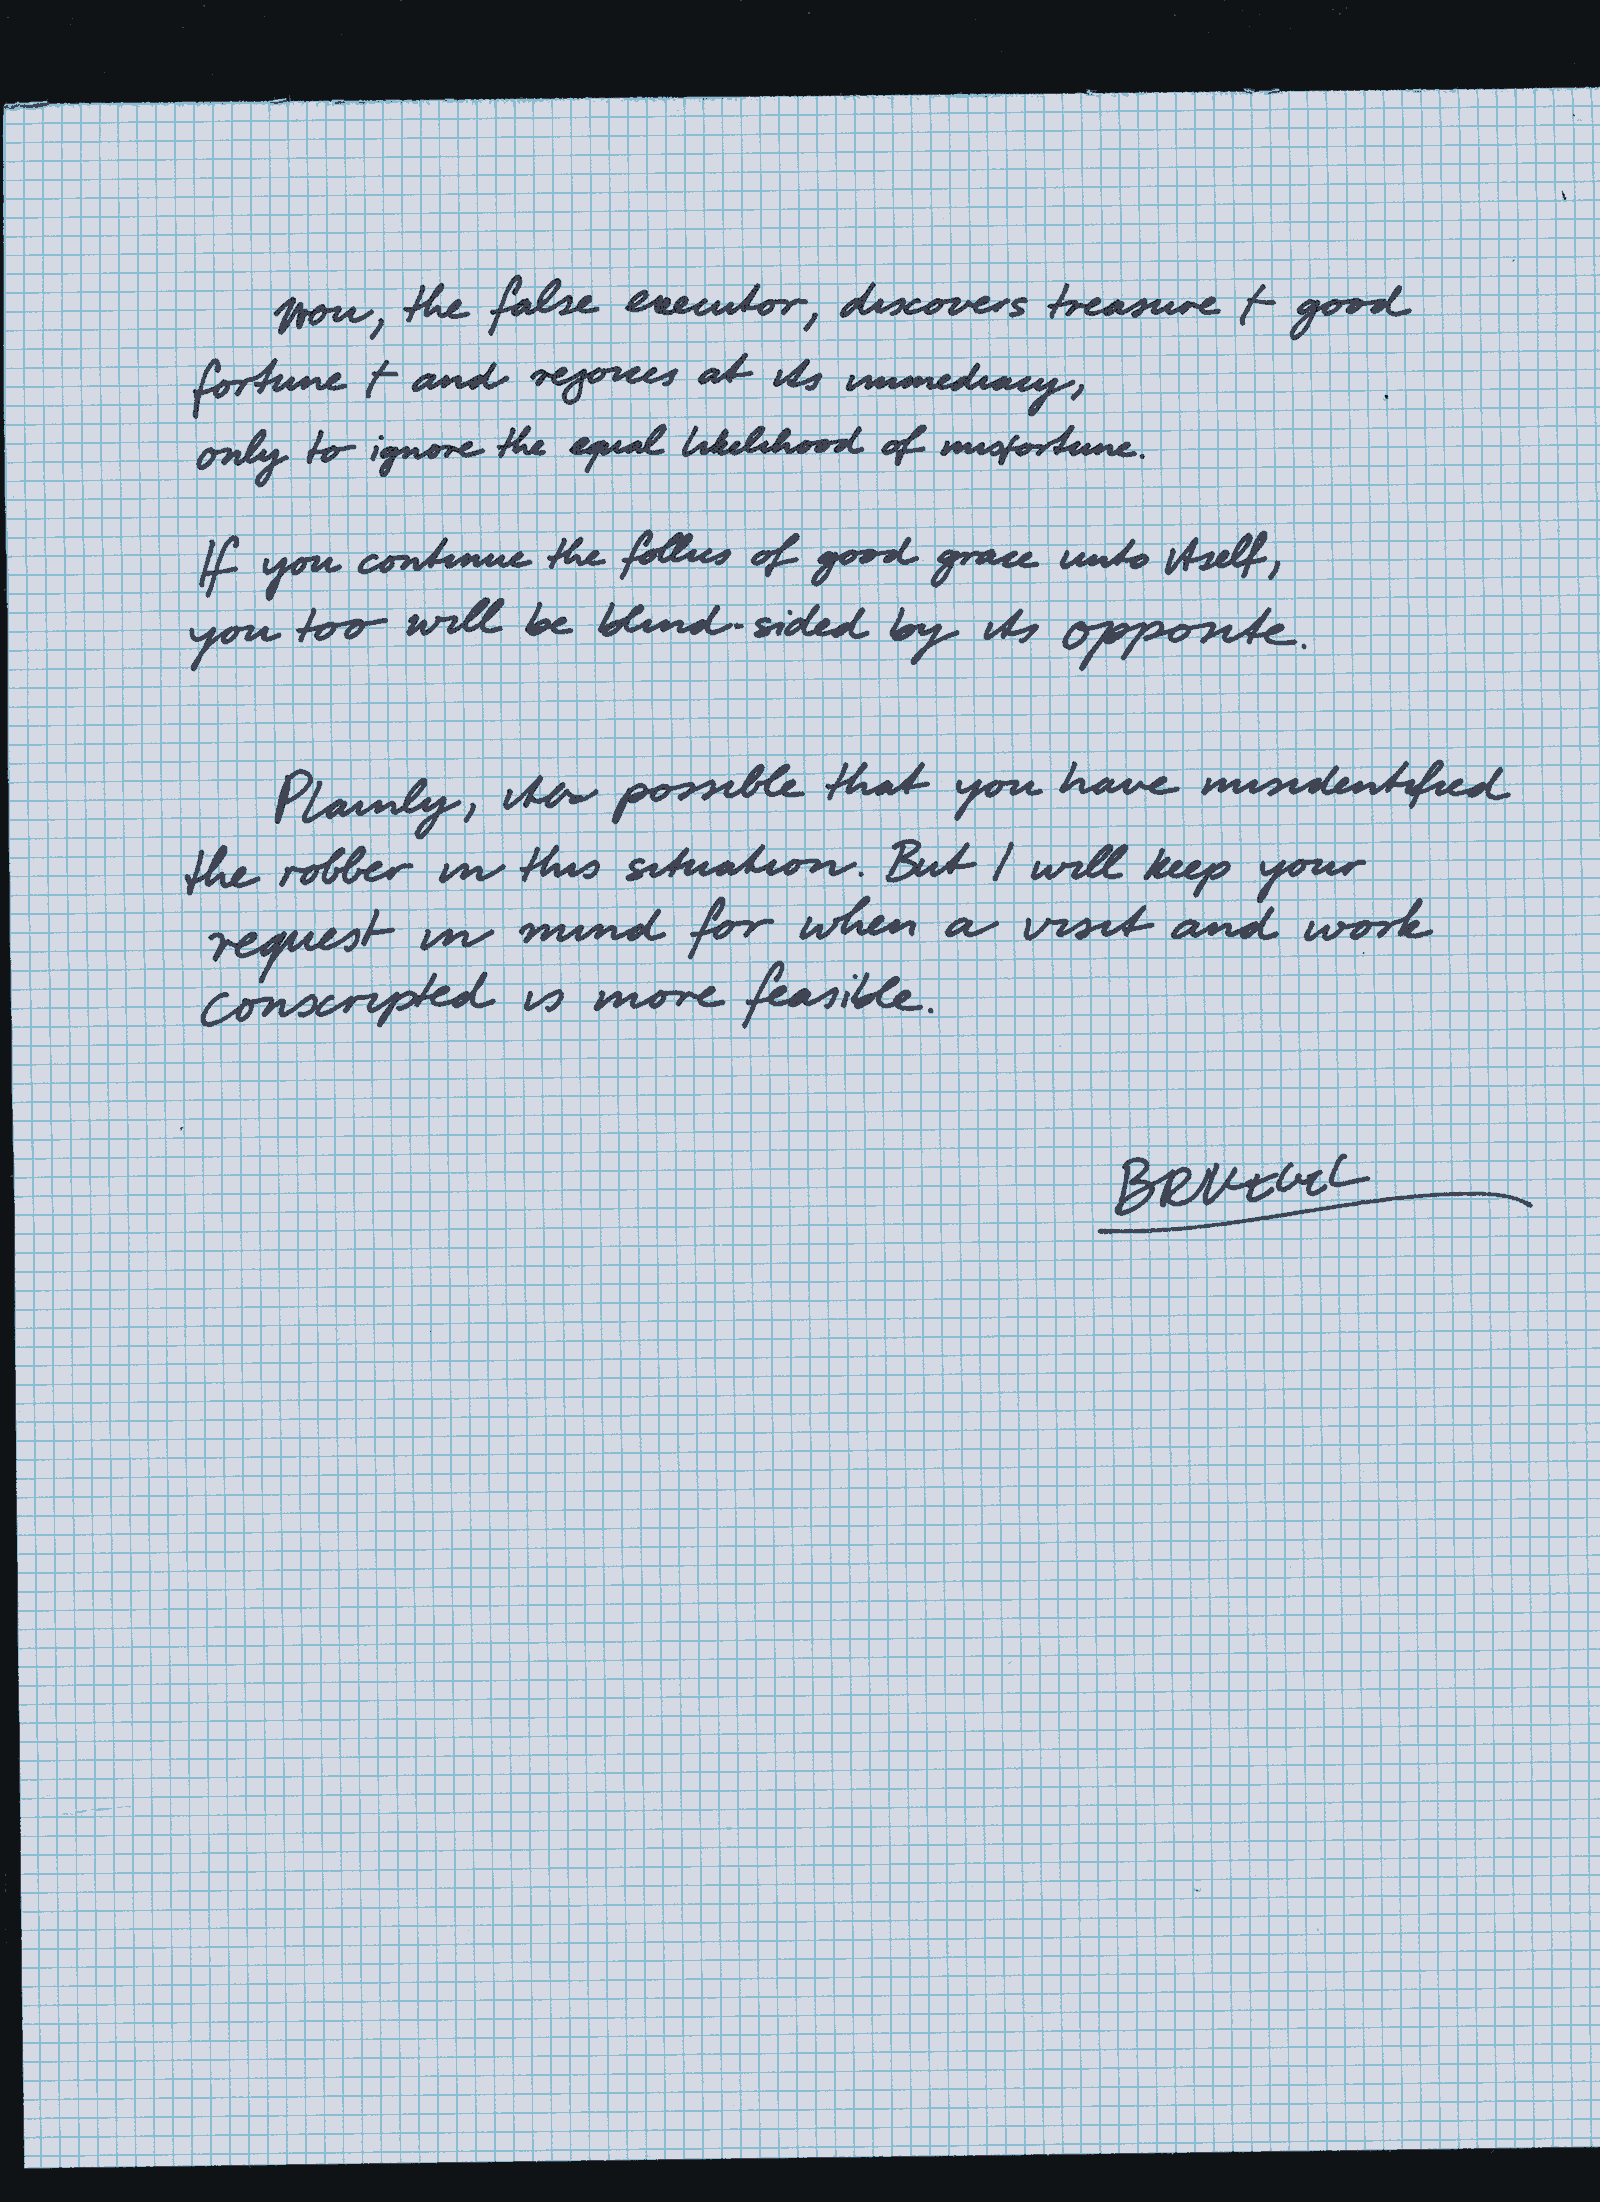 the false executor, discovers treasure + good
fortune + and rejoices at its immediacy,
only to ignore the equal likelihood of misfortune.
If you continue the follies of good grace unto itself,
you too will be blind-sided by its opposite.
Plainly, possible that you have misidentified
the robber in this situation. But I will keep your
request in mind for when a visit and work
conscripted is more feasible.
BRUEGEL